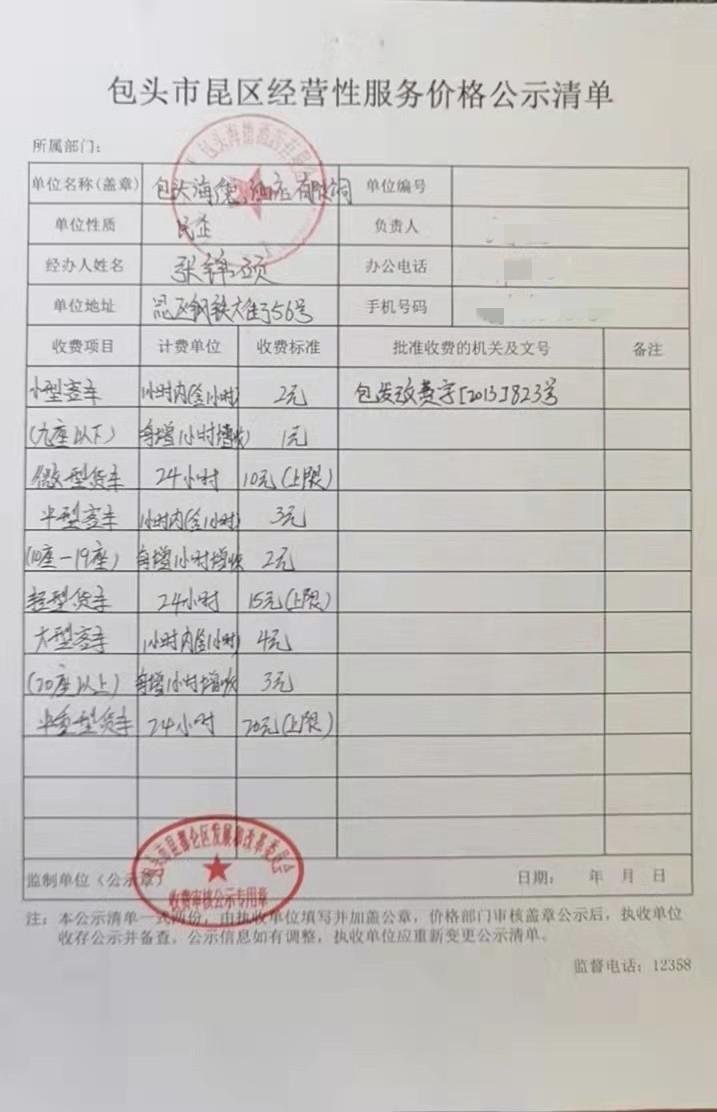 包头市昆区经营性服务价格公示清单
所属部门:
单位名称(盖章) 包头海德酒店有限公司 单位编号
单位性质 民企 负责人
经办人姓名 张 办公电话
单位地址 昆区钢铁大街56号 手机号码
收费项目 计费单位 收费标准 批准收费的机关及文号 备注
小型客车 1小时内(含1小时) 2元 包发改费字[2013]823号
(九座以下) 每增1小时增收 1元
微型货车 24小时 10元(上限)
中型客车 1小时内(含1小时) 3元
(10座-19座) 每增1小时增收 2元
轻型货车 24小时 15元(上限)
大型客车 1小时内(含1小时) 4元
(20座以上) 每增1小时增收 3元
中重型货车 24小时 20元(上限)
包头市昆都仑区发展和改革委员会
收费审核公示专用章
监制单位(公示章) 日期: 年 月 日
注: 本公示清单一式两份, 由执收单位填写并加盖公章, 价格部门审核盖章公示后, 执收单位
收存公示并备查, 公示信息如有调整, 执收单位应重新变更公示清单。
监督电话: 12358